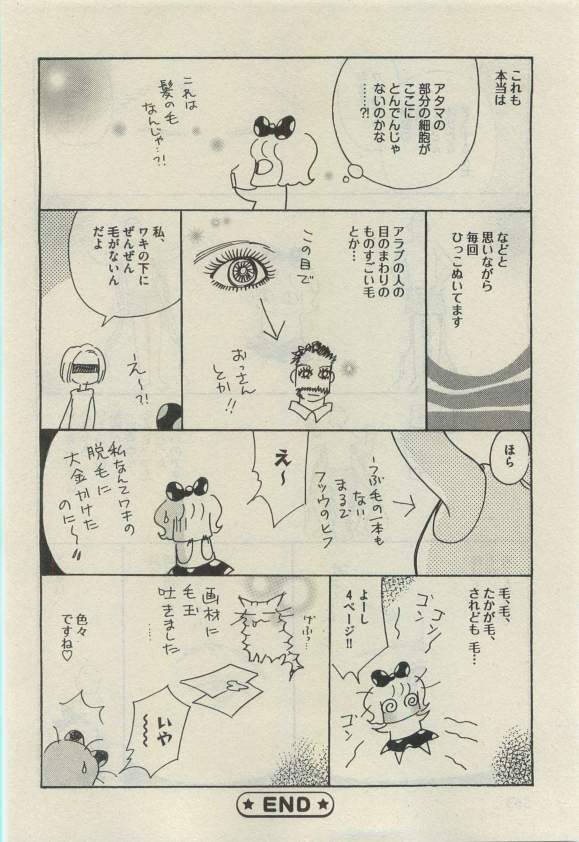 これも
本当は
アタマの
部分の細胞が
ここに
とんでんじゃ
ないのかな
……?!
これは
髪の毛
なんじゃ…?!
などと
思いながら
毎回
ひっこぬいてます
アラブの人の
目のまわりの
ものすごい毛
とか…
この目で
おっさん
とか!!
私、
ワキの下に
ぜんぜん
毛がないん
だよ
え〜?!
ほら
つぶ毛の一本も
ない
まるで
フツウのヒフ
え〜
私なんてワキの
脱毛に
大金かけた
のに〜
毛、毛、
たかが毛、
されども 毛…
よーし
4ページ!!
ゴン
ゴン
ゴン
げふっ…
画材に
毛玉
吐きました
……
いや
〜〜
色々
ですね♡
★ END ★